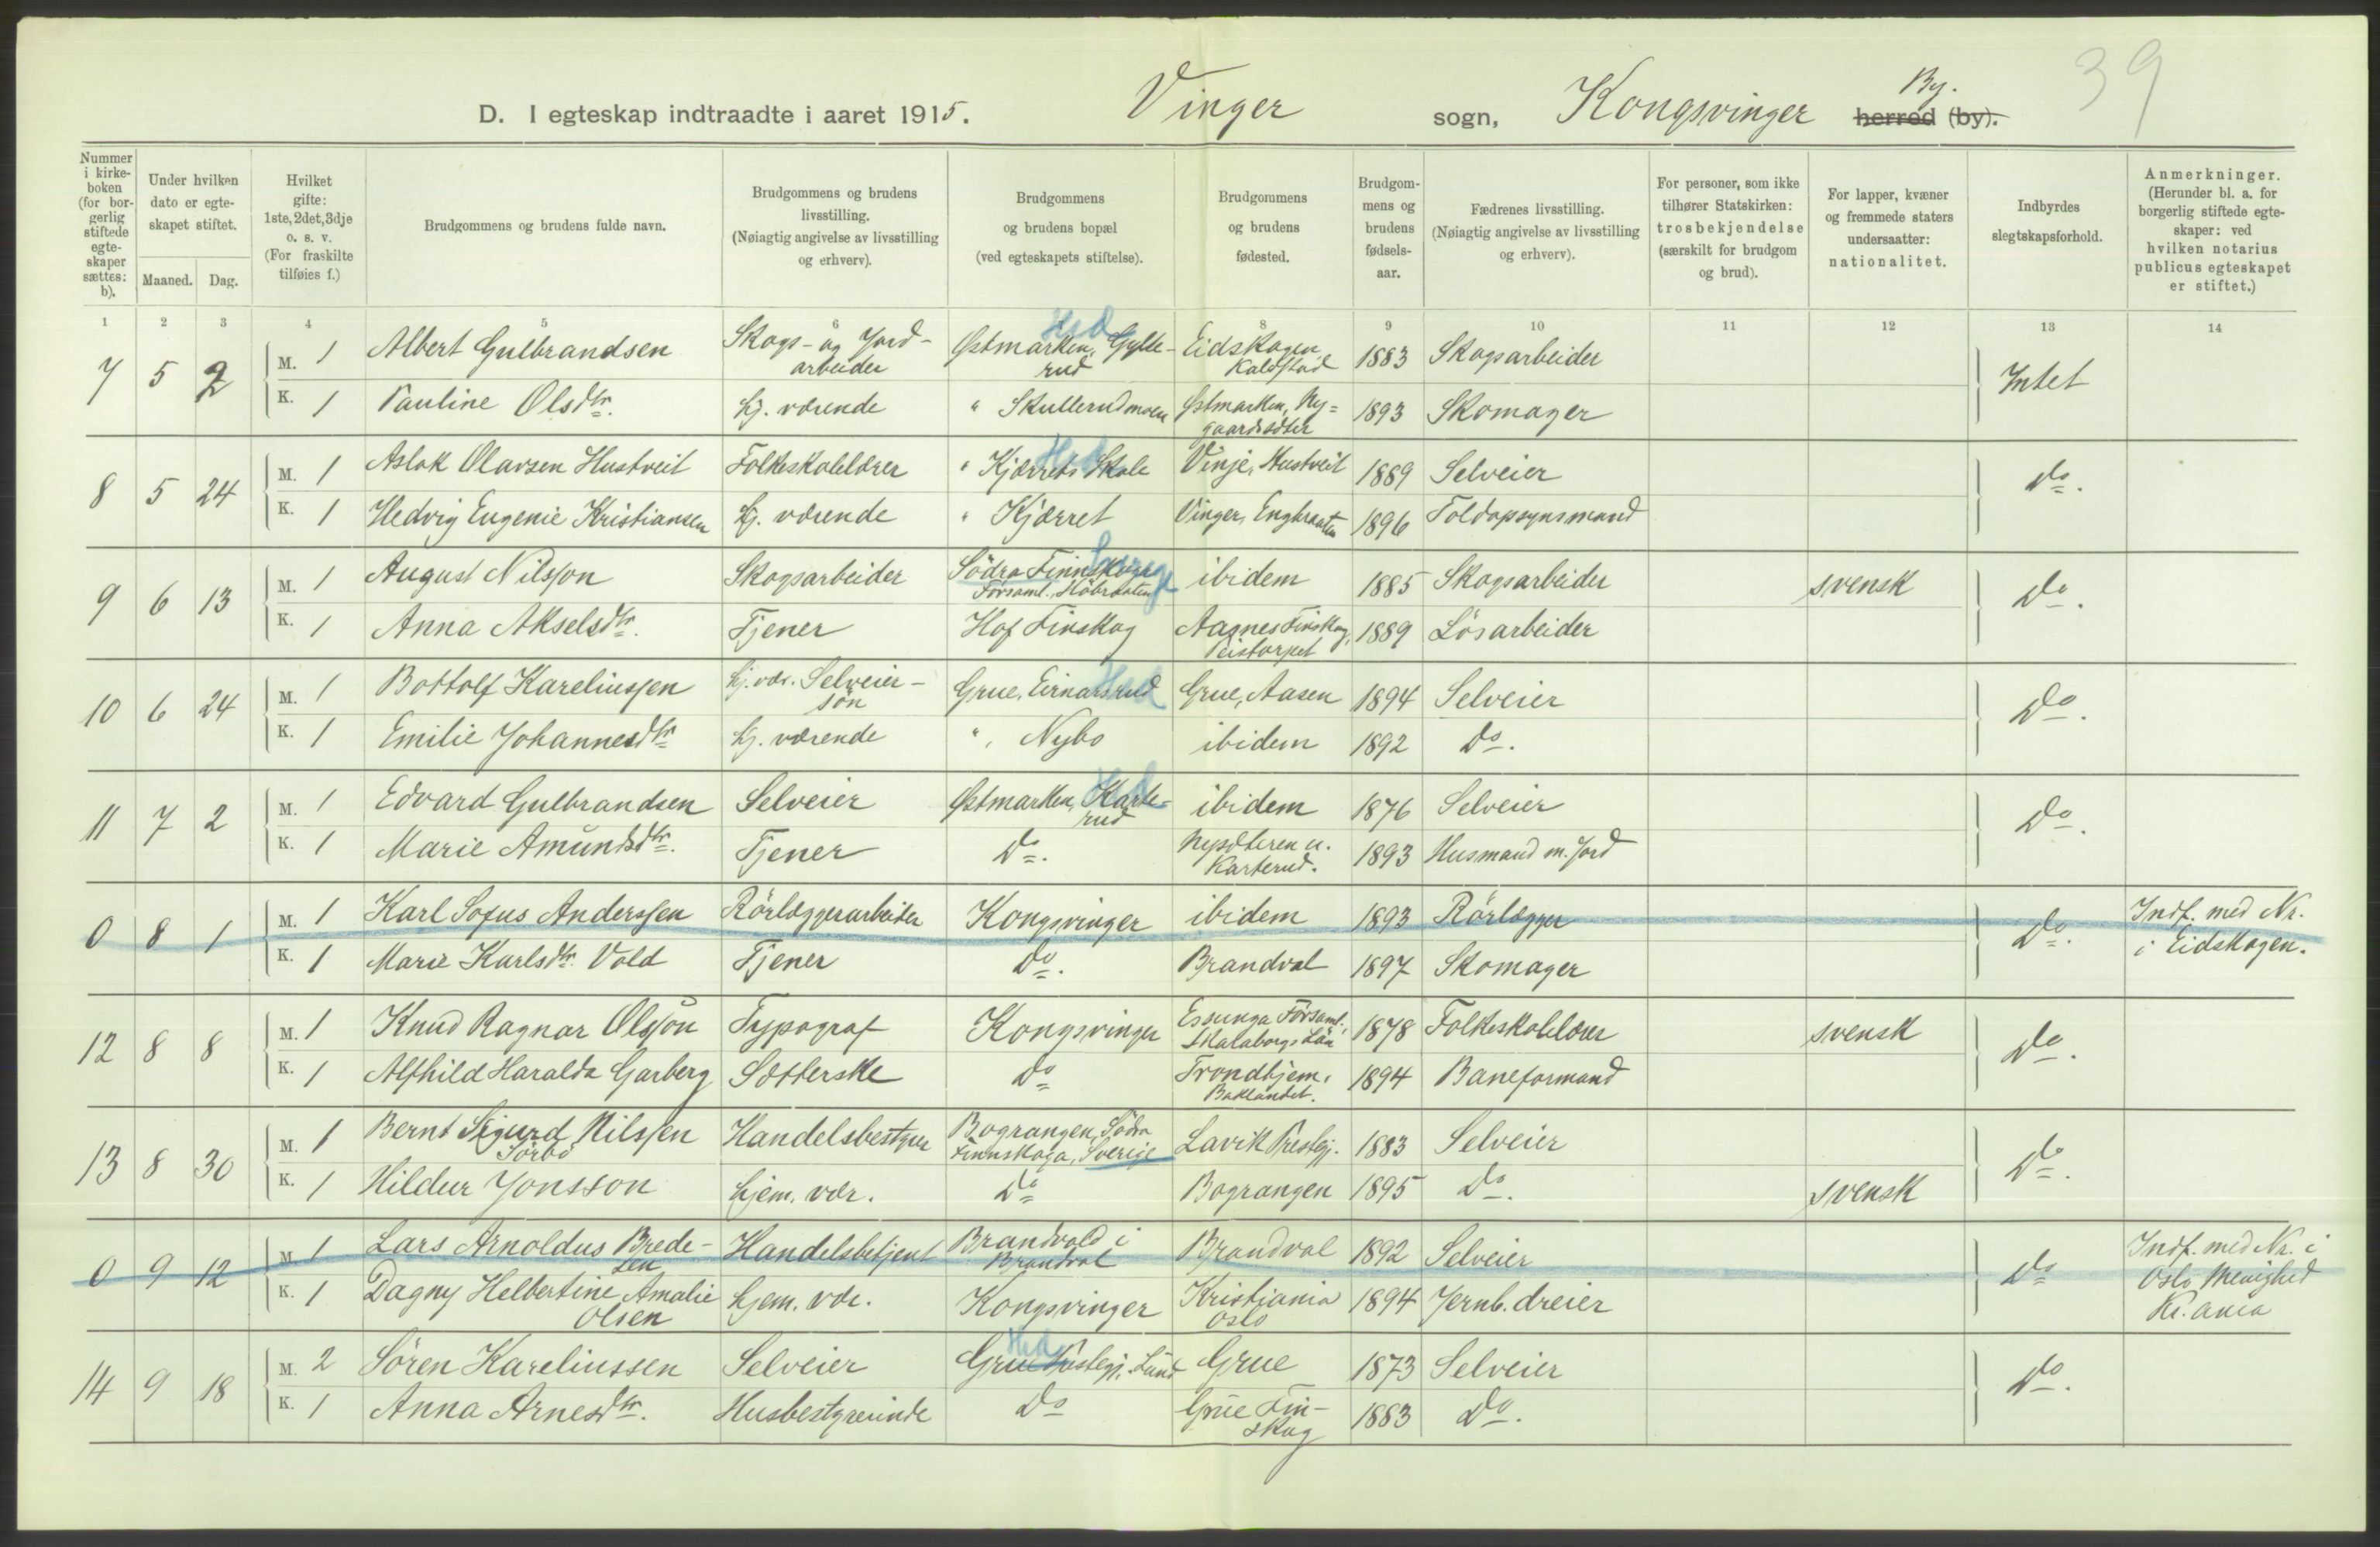 39
D. I egteskap indtraadte i aaret 1915. Vinger sogn, Kongsvinger By. herred (by).
Nummer i kirkeboken (for borgerlig stiftede egteskaper sættes: b).
Under hvilken dato er egteskapet stiftet.
Maaned. Dag.
Hvilket gifte: 1ste, 2det, 3dje o. s. v. (For fraskilte tilføies f.)
Brudgommens og brudens fulde navn.
Brudgommens og brudens livsstilling. (Nøiagtig angivelse av livsstilling og erhverv).
Brudgommens og brudens bopæl (ved egteskapets stiftelse).
Brudgommens og brudens fødested.
Brudgommens og brudens fødselsaar.
Fædrenes livsstilling. (Nøiagtig angivelse av livsstilling og erhverv).
For personer, som ikke tilhører Statskirken: trosbekjendelse (særskilt for brudgom og brud).
For lapper, kvæner og fremmede staters undersaatter: nationalitet.
Indbyrdes slegtskapsforhold.
Anmerkninger. (Herunder bl. a. for borgerlig stiftede egteskaper: ved hvilken notarius publicus egteskapet er stiftet.)
1 2 3 4 5 6 7 8 9 10 11 12 13 14
7 5 2 M. 1 Albert Gulbrandsen Skogs- og Jord-arbeider Østmarken, Gylterud Hed Eidskogen Kaldstad 1883 Skogsarbeider Intet
K. 1 Pauline Olsdtr. hj. værende " Skullerudmoen Østmarken, Ny=gaardssæter 1893 Skomager
8 5 24 M. 1 Aslak Olavsen Hustveit Folkeskolelærer " Kjærrets Skole Hed Vinje, Hustveit 1889 Selveier Do.
K. 1 Hedvig Eugenie Kristiansen hj. værende " Kjærret Vinger, Engbraaten 1896 Toldopsynsmand
9 6 13 M. 1 August Nilsson Skogsarbeider Södra Finnskoga Församl. Sverige ibidem 1885 Skogsarbeider svensk Do.
K. 1 Anna Akselsdtr. Tjener Hof Finskog Aasnes Finskog, Peistorpet 1889 Lösarbeider
10 6 24 M. 1 Bottolf Kareliussen hj. vær. Selveier-sön Grue, Einarsrud Hed Grue, Aasen 1894 Selveier Do.
K. 1 Emilie Johannesdtr hj. værende ", Nybo ibidem 1892 Do.
11 7 2 M. 1 Edvard Gulbrandsen Selveier Østmarken, Karte=rud Hed ibidem 1876 Selveier Do.
K. 1 Marie Amundsdtr. Tjener Do. Nysæteren u. Karterud. 1893 Husmand m. Jord
0 8 1 M. 1 Karl Sofus Anderssen Rörlæggerarbeider Kongsvinger ibidem 1893 Rörlægger Do. Indf. med Nr. i Eidskogen.
K. 1 Marie Karlsdtr. Vold Tjener Do. Brandval 1897 Skomager
12 8 8 M. 1 Knud Ragnar Olsson Typograf Kongsvinger Essunga Församl., Skaraborgs Län 1878 Folkeskolelærer svensk Do.
K. 1 Alfhild Haralda Garberg Sætterske Do Trondhjem, Baklandet. 1894 Baneformand
13 8 30 M. 1 Bernt Sigurd Nilssen Sörbö Handelsbestyrer Bograngen, Södra Finnskoga, Sverige Lavik Prestegj. 1883 Selveier Do.
K. 1 Hildur Jonsson hjem. vær. Do Bograngen 1895 Do. svensk
0 9 12 M. 1 Lars Arnoldus Bredesen Handelsbetjent Brandvold i Brandval Brandval 1892 Selveier Do Indf. med Nr. i Oslo Menighed Kr.ania
K. 1 Dagny Helbertine Amalie Olsen hjem. vær. Kongsvinger Kristiania Oslo 1894 Jernb. dreier
14 9 18 M. 2 Sören Kareliussen Selveier Grue Prestegj. Lund Hed Grue 1873 Selveier Do.
K. 1 Anna Arnesdtr. Husbestyrerinde Do Grue Fin-skog 1883 Do.